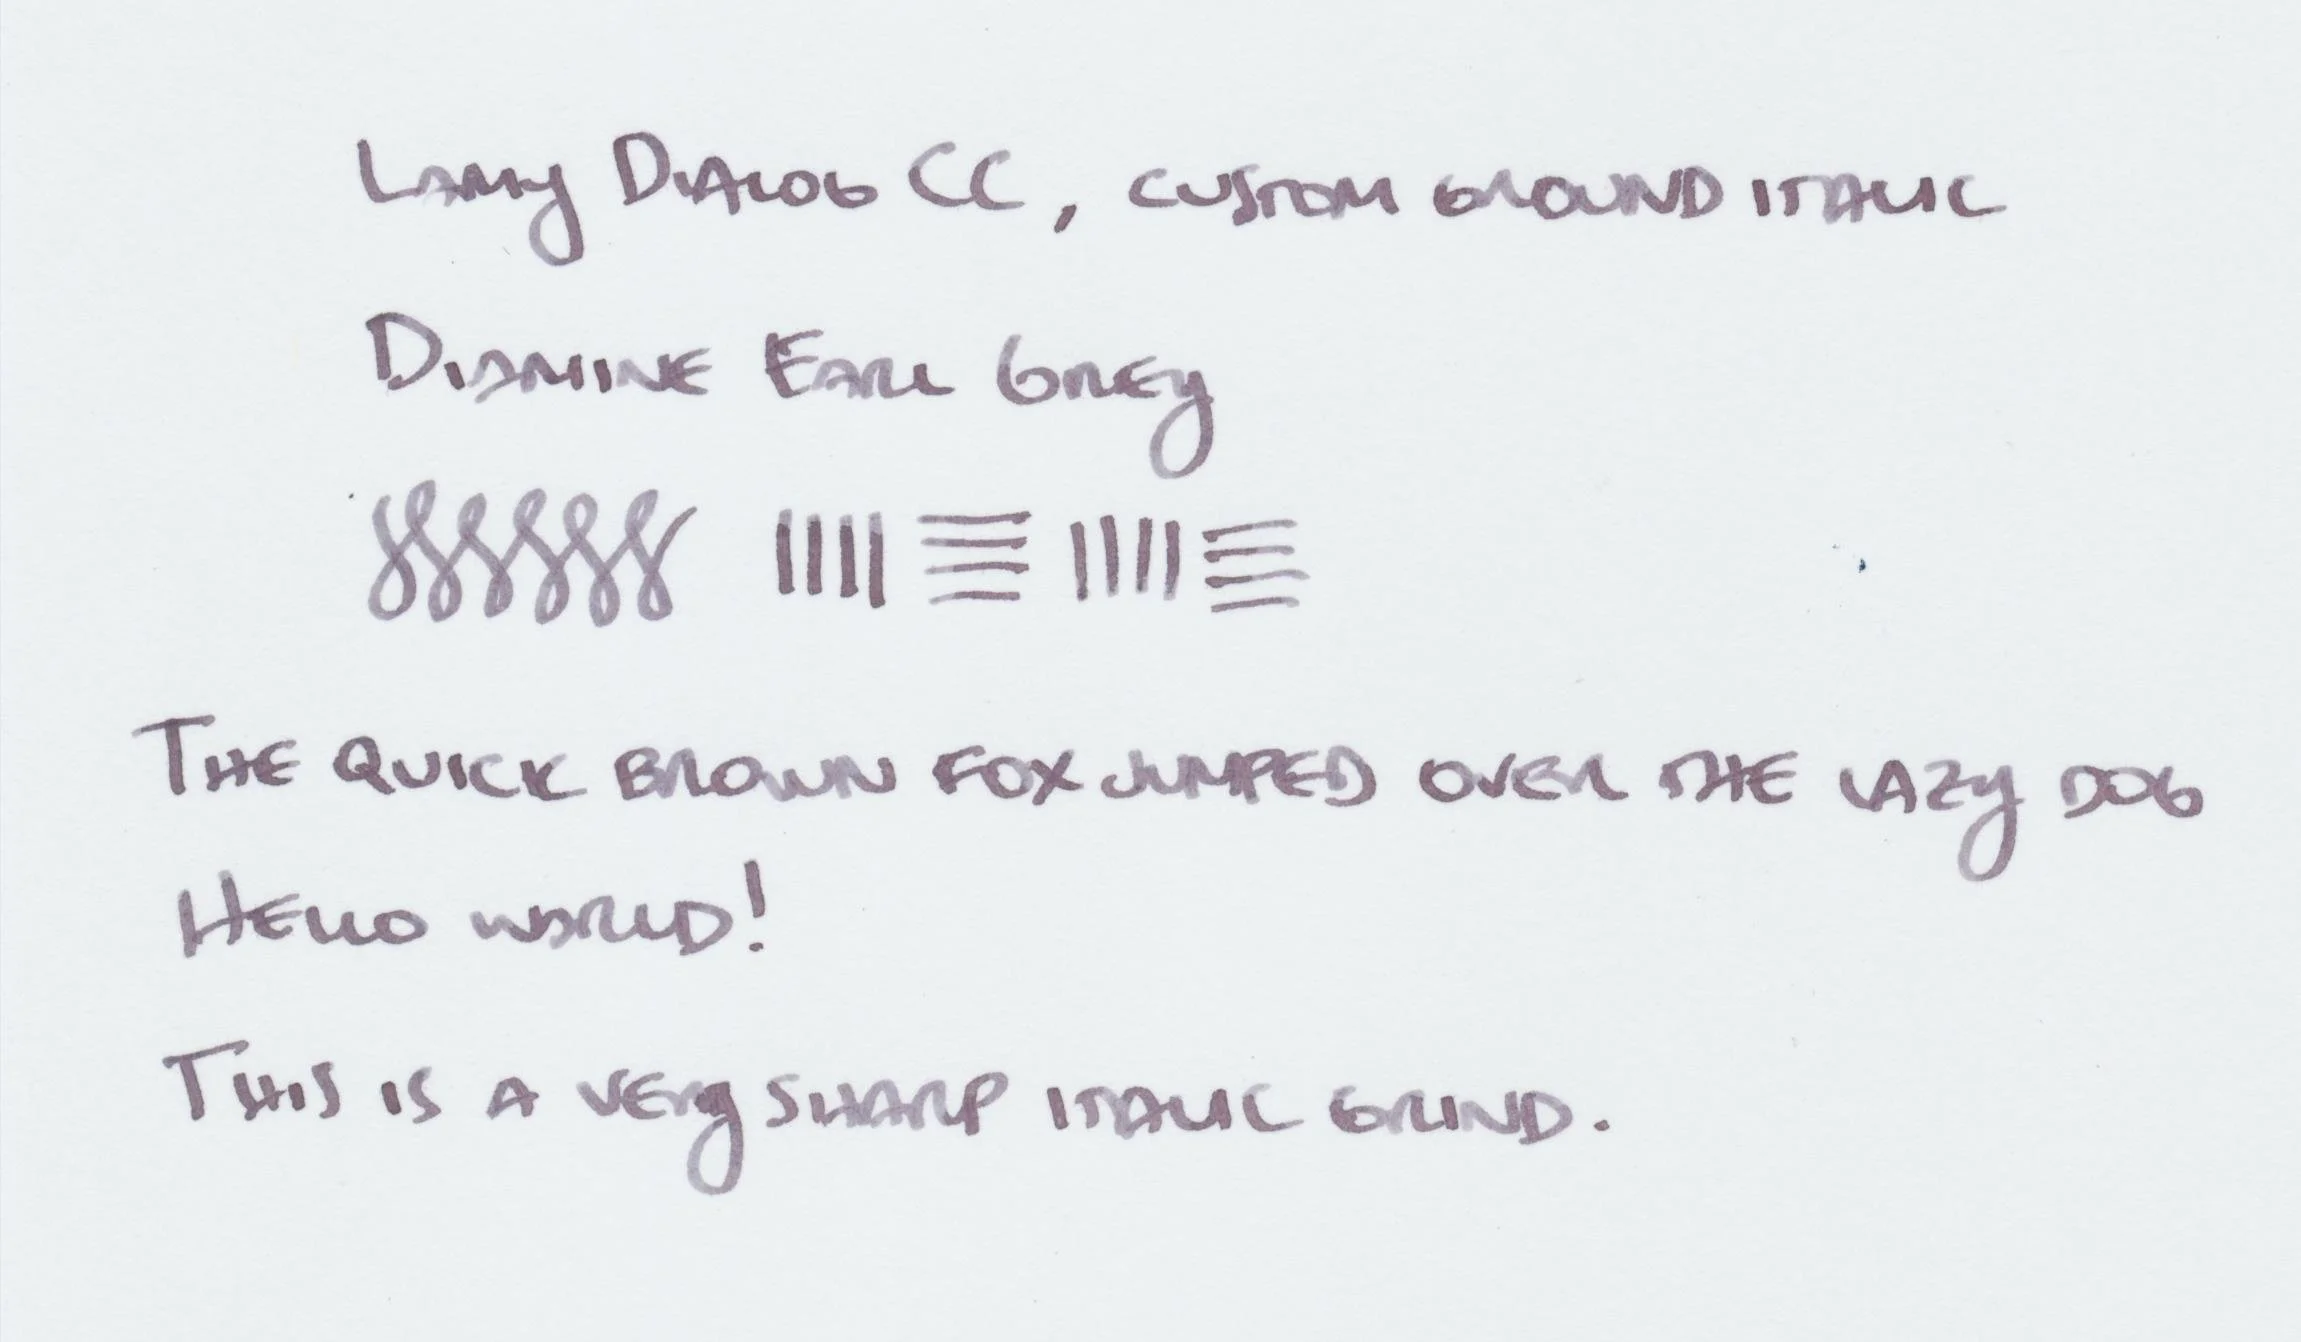 Lamy Dialog CC, custom ground italic
Diamine Earl Grey
The quick brown fox jumped over the lazy dog
Hello world!
This is a very sharp italic grind.